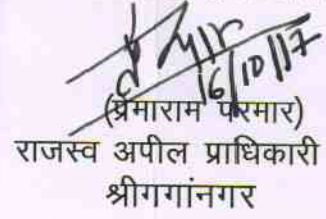 16/10/17
(प्रेमाराम परमार)
राजस्व अपील प्राधिकारी
श्रीगगांनगर